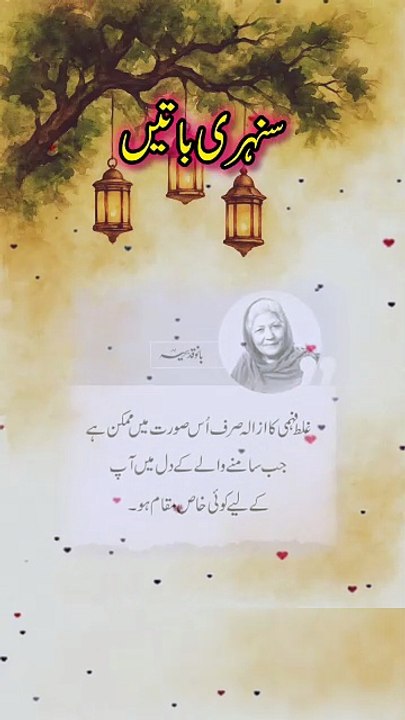 سنہری باتیں
بانو قدسیہؒ
غلط فہمی کا ازالہ صرف اُس صورت میں ممکن ہے
جب سامنے والے کے دل میں آپ
کے لیے کوئی خاص مقام ہو۔